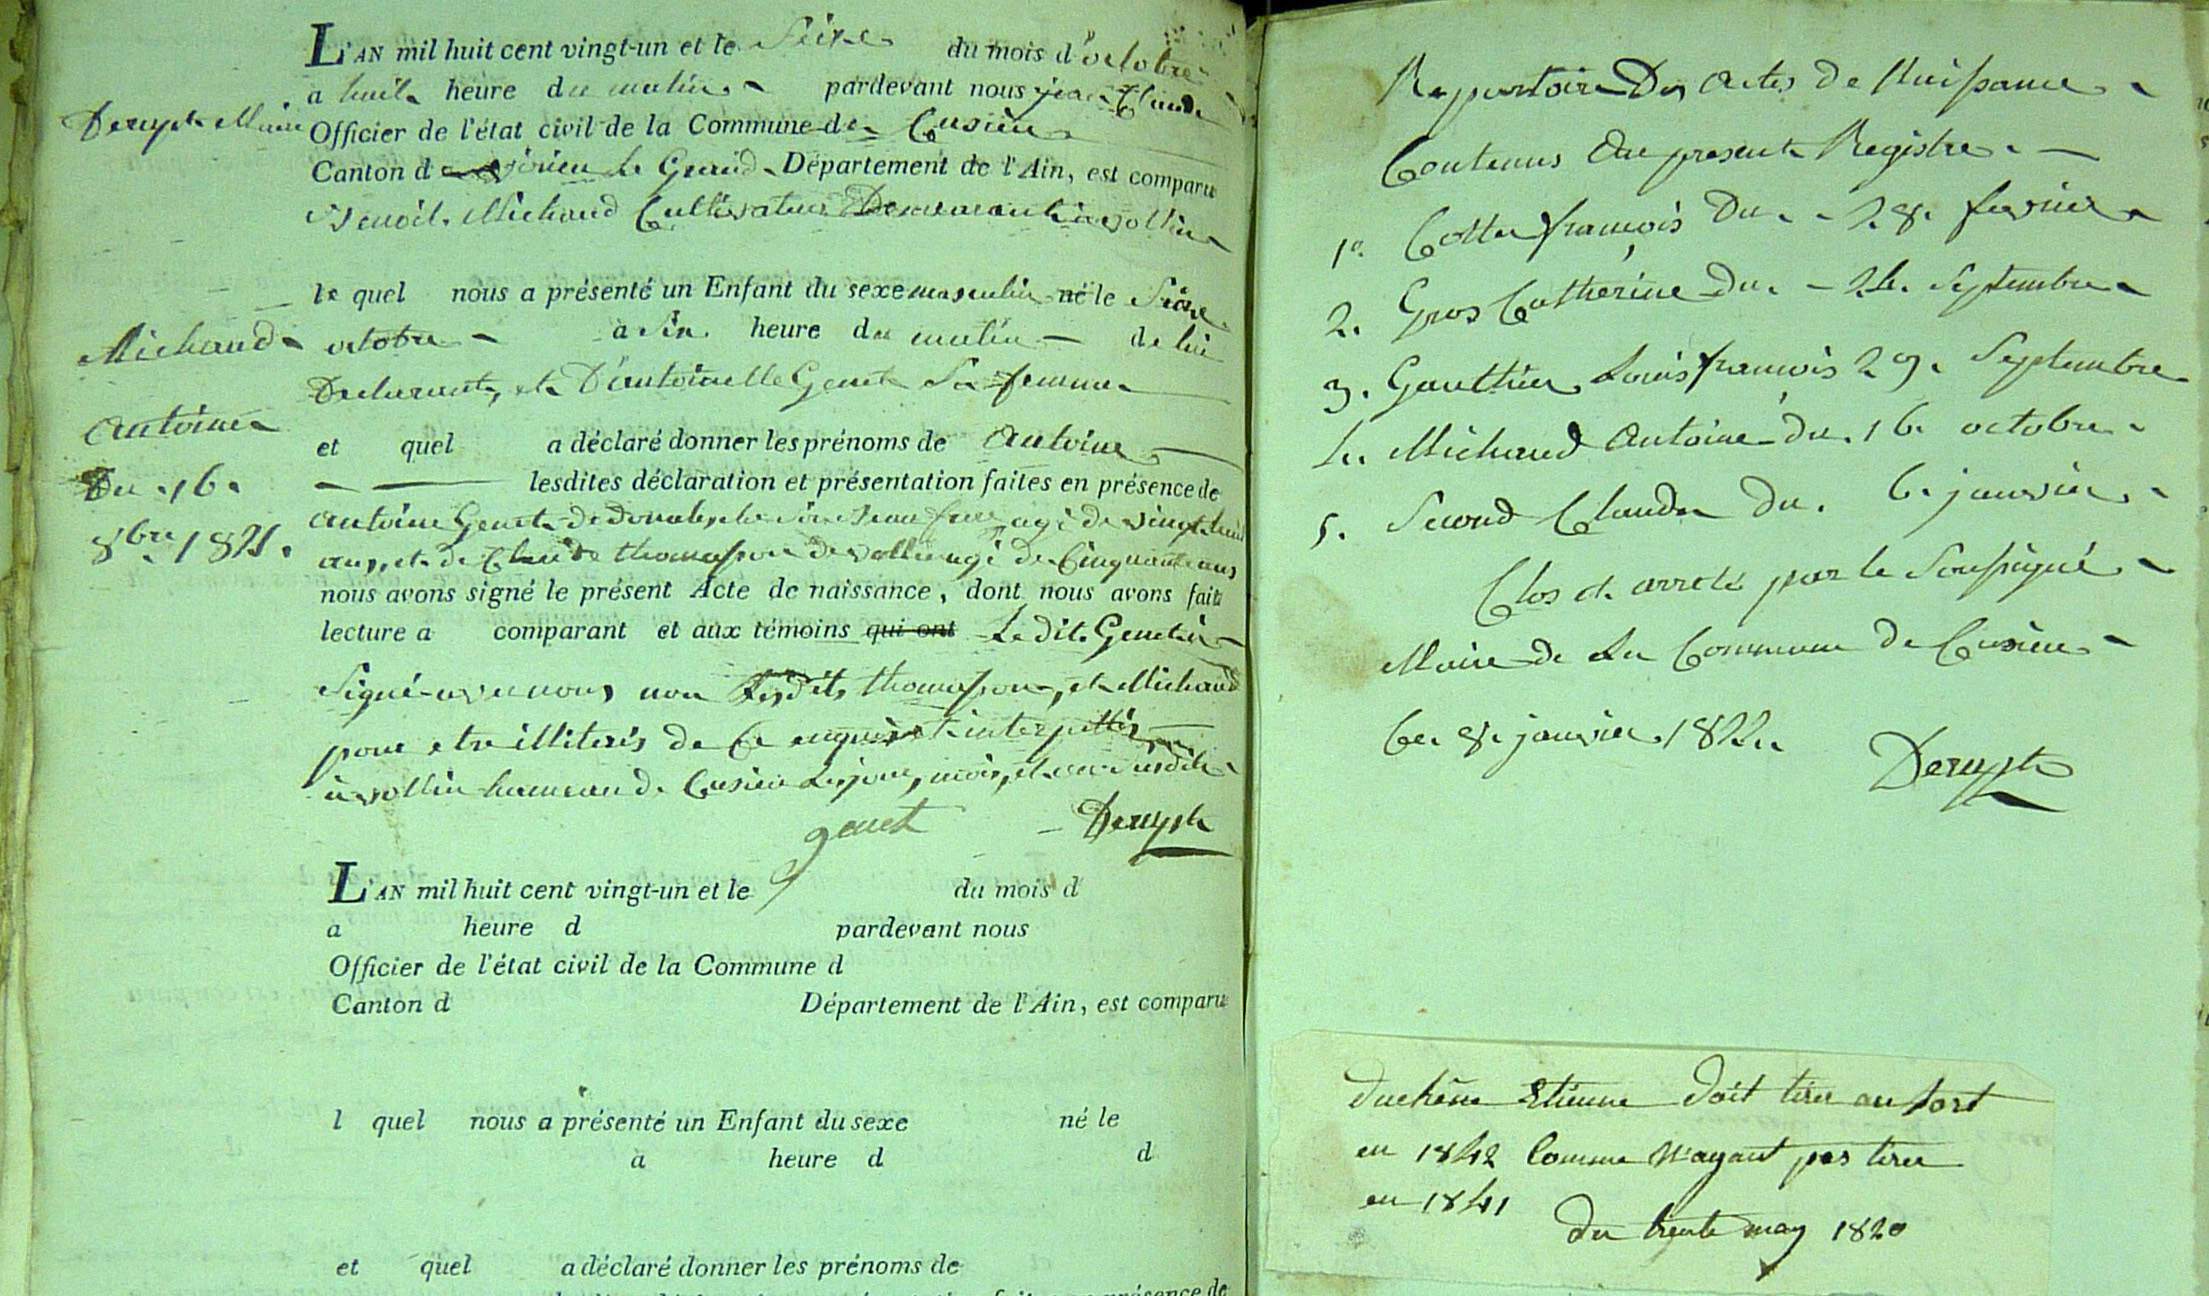 L'AN mil huit cent vingt-un et le Seize du mois d'octobre
a huit heure du matin pardevant nous jean Claude
Deruyst Maire
Officier de l'état civil de la Commune de Cusieu
Canton de virieu le Grand Département de l'Ain, est comparu
Benoit Michaud Cultivateur Demeurant a vollin
le quel nous a présenté un Enfant du sexe masculin né le Seize
octobre à Six heure du matin de lui
Declarant, et D'antoinette Genet Sa femme
et quel a déclaré donner les prénoms de Antoine
lesdites déclaration et présentation faites en présence de
antoine Genet de agé de vingt huit
ans, et de Claude thomasson de vollin agé de Cinquante ans
nous avons signé le présent Acte de naissance, dont nous avons fait
lecture a comparant et aux témoins qui ont Le dit Genet a
Signé avec nous, non Lesdits thomasson, et Michaud
pour etre illiterés de Ce enquis et interpellés
a vollin hameau de Cusieu Les jour, mois, et an susdits
genet Deruyst
Michaud
Antoine
Du 16.
8bre 1821.
L'AN mil huit cent vingt-un et le du mois d
a heure d pardevant nous
Officier de l'état civil de la Commune d
Canton d Département de l'Ain, est comparu
l quel nous a présenté un Enfant du sexe né le
à heure d d
et quel a déclaré donner les prénoms de
présence de
Repertoire Des Actes de Naissance
Contenus Au present Registre
1º. Cottin françois Du 28. fevrier
2. Gros Catherine Du 24. Septembre
3. Gauthier Louis françois 29. Septembre
4. Michaud Antoine du 16 octobre
5. Second Claude Du. 6. janvier
Clos et arreté par le Soussigné
Maire de La Commune de Cusieu
Ce 8. janvier 1822.
Deruyst
duchêne Etienne doit tirer au sort
en 1842 Comme N'ayant pas tirer
en 1841
du trente may 1820